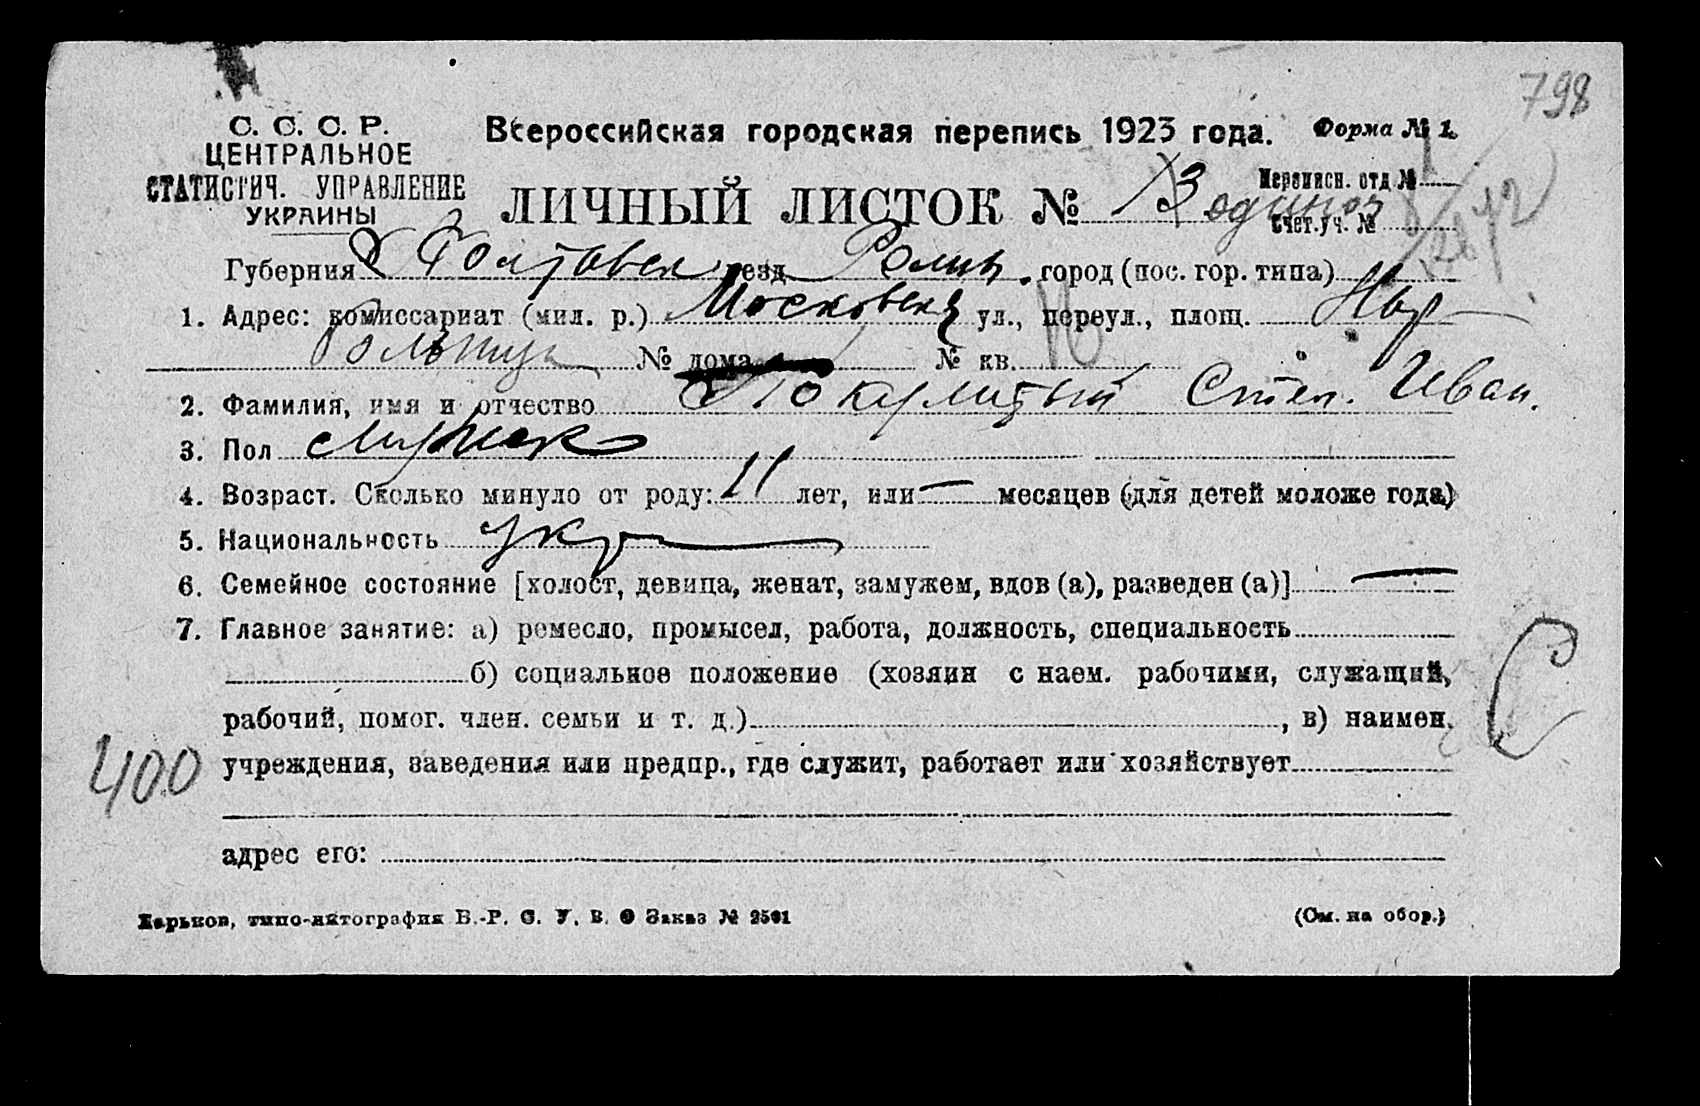 798
С. С. С. Р.
ЦЕНТРАЛЬНОЕ
СТАТИСТИЧ. УПРАВЛЕНИЕ
УКРАИНЫ
Всероссийская городская перепись 1923 года. Форма № 1.
ЛИЧНЫЙ ЛИСТОК № 13 одиноч
Переписн. отд №
Счет.уч. №
Губерния Полтовск уезд Ромны город (пос. гор. типа)
1. Адрес: комиссариат (мил. р.) Московская ул., переул., площ. Нар
Больница № дома № кв.
2. Фамилия, имя и отчество Степ. Иван.
3. Пол мужск
4. Возраст. Сколько минуло от роду: 11 лет, или — месяцев (для детей моложе года)
5. Национальность укр
6. Семейное состояние [холост, девица, женат, замужем, вдов (а), разведен (а)] —
7. Главное занятие: а) ремесло, промысел, работа, должность, специальность
б) социальное положение (хозяин с наем. рабочими, служащий,
рабочий, помог. член. семьи и т. д.) , в) наимен.
учреждения, заведения или предпр., где служит, работает или хозяйствует
400
адрес его:
Харьков, типо-литография В.-Р. С. У. В. О Заказ № 2501
(См. на обор.)